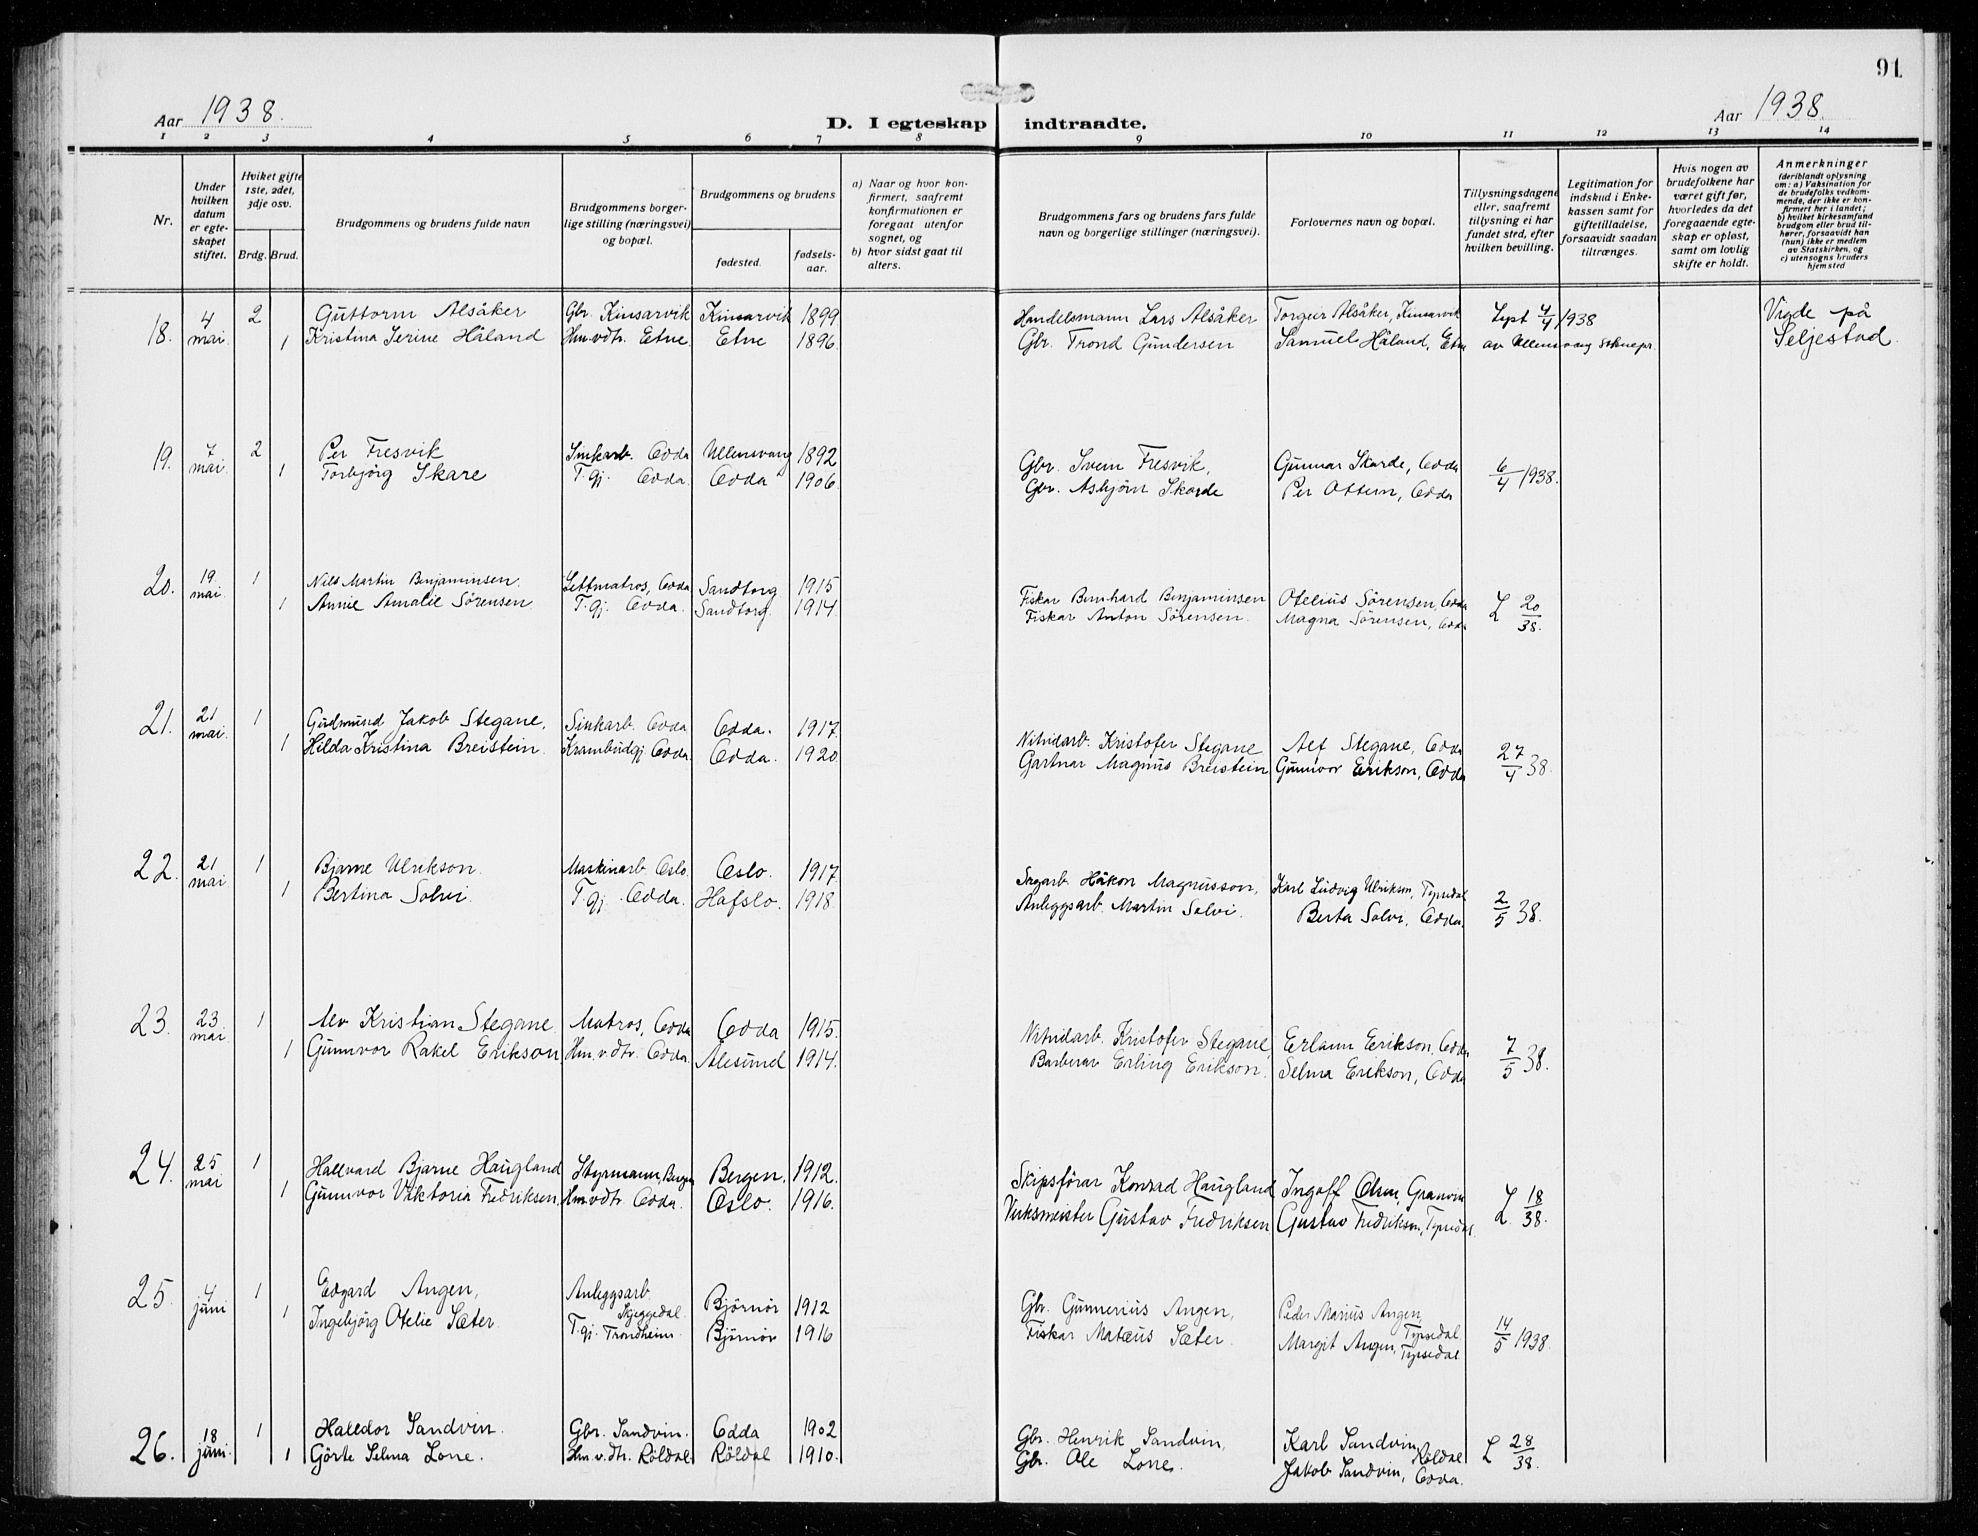 91
Aar 1938.
D. I egteskap indtraadte.
Aar 1938.
1 2 3 4 5 6 7 8 9 10 11 12 13 14
Nr.
Under hvilken datum er egteskapet stiftet.
Hviket gifte 1ste, 2det, 3dje osv.
Brdg. Brud.
Brudgommens og brudens fulde navn
Brudgommens borgerlige stilling (næringsvei) og bopæl.
Brudgommens og brudens
fødested.
fødselsaar.
a) Naar og hvor konfirmert, saafremt konfirmationen er foregaat utenfor sognet, og
b) hvor sidst gaat til alters.
Brudgommens fars og brudens fars fulde navn og borgerlige stillinger (næringsvei).
Forlovernes navn og bopæl.
Tillysningsdagene eller, saafremt tillysning ei har fundet sted, efter hvilken bevilling.
Legitimation for indskud i Enkekassen samt for giftetilladelse, forsaavidt saadan tiltrænges.
Hvis nogen av brudefolkene har været gift før, hvorledes da det foregaaende egteskap er opløst, samt om lovlig skifte er holdt.
Anmerkninger (deriblandt oplysning om: a) Vaksination for de brudefolks vedkommende, der ikke er konfirmert her i landet; b) hvilket kirkesamfund brudgom eller brud tilhører, forsaavidt han (hun) ikke er medlem av Statskirken, og c) utensogns bruders hjemsted
18. 4 mai 2 Guttorm Alsåker Gbr. Kinsarvik Kinsarvik 1899 Handelsmann Lars Alsåker Torgeir Alsåker, Kinsarvik Lyst 4/4 1938 Vigde på
1 Kristina Serine Håland Hm.vdtr. Etne Etne 1896 Gbr. Trond Gundersen Samuel Håland, Etne av Ullensvang Seljestad
19. 7 mai 2 Per Fresvik Sinkarb. Odda Ullensvang 1892 Gbr. Svein Fresvik, Gunnar Skarde, Odda 6/4 1938.
1 Torbjörg Skare T.gj. Odda. Odda 1906 Gbr. Asbjørn Skarde Per Ottem, Odda
20. 19 mai 1 Nils Martin Benjaminsen. Lettmatros, Odda Sandtorg 1915 Fiskar Bernhard Benjaminsen Otelius Sörensen, Odda L 20/38.
1 Annie Amalie Sörensen T.gj. Odda. Sandtorg. 1914 Fiskar Anton Sörensen. Magna Sörensen, Odda
21. 21 mai. 1 Gudmund Jakob Stegane, Sinkarb. Odda Odda. 1917. Nitridarb. Kristofer Stegane Alf Stegane, Odda 27/4 38.
1 Hilda Kristina Breistein. Krambudgj. Odda Odda. 1920. Gartnar Magnus Breistein Gunnvor Erikson, Odda
22. 21 mai 1 Bjarne Ulrikson. Maskinarb. Oslo. Oslo. 1917. Sagarb. Håkon Magnusson, Karl Ludvig Ulrikson, Tyssedal 2/5 38.
1 Bertina Solvi. T.gj. Odda. Hafslo. 1918 Anleggsarb. Martin Solvi. Berta Solvi, Odda.
23. 23 mai 1 Alv Kristian Stegane Matros, Odda Odda 1915. Nitridarb. Kristofer Stegane, Erlaun Erikson, Odda 7/5 38.
1 Gunnvor Rakel Erikson Hm.v.dtr. Odda. Ålesund 1914. Barberar Erling Erikson. Selma Erikson, Odda
24. 25 mai 1 Hallvard Bjarne Haugland Styrmann, Bergen Bergen. 1912. Skipsförar Konrad Haugland Ingolf Olsen, Granvin L 18/38.
1 Gunnvor Viktoria Fredriksen. Hm.vdtr. Odda. Oslo. 1916. Verksmeister Gustav Fredriksen Gustav Fredriksen, Tyssedal
25. 4 juni 1 Edgard Angen, Anleggsarb. Skjeggedal. Bjørnør 1912 Gbr. Gunnerius Angen, Peder Marius Angen, Tyssedal 14/5 1938.
1 Ingebjörg Otelie Sæter. T.gj. Trondheim. Bjørnør 1916 Fiskar Matæus Sæter. Margit Angen, Tyssedal
26. 18 juni. 1 Halldor Sandvin. Gbr. Sandvin. Odda 1902 Gbr. Henrik Sandvin, Karl Sandvin, Röldal L 28/38.
1 Görte Selma Lone. Hm.v.dtr. Röldal Röldal 1910. Gbr. Ole Lone. Jakob Sandvin, Odda.